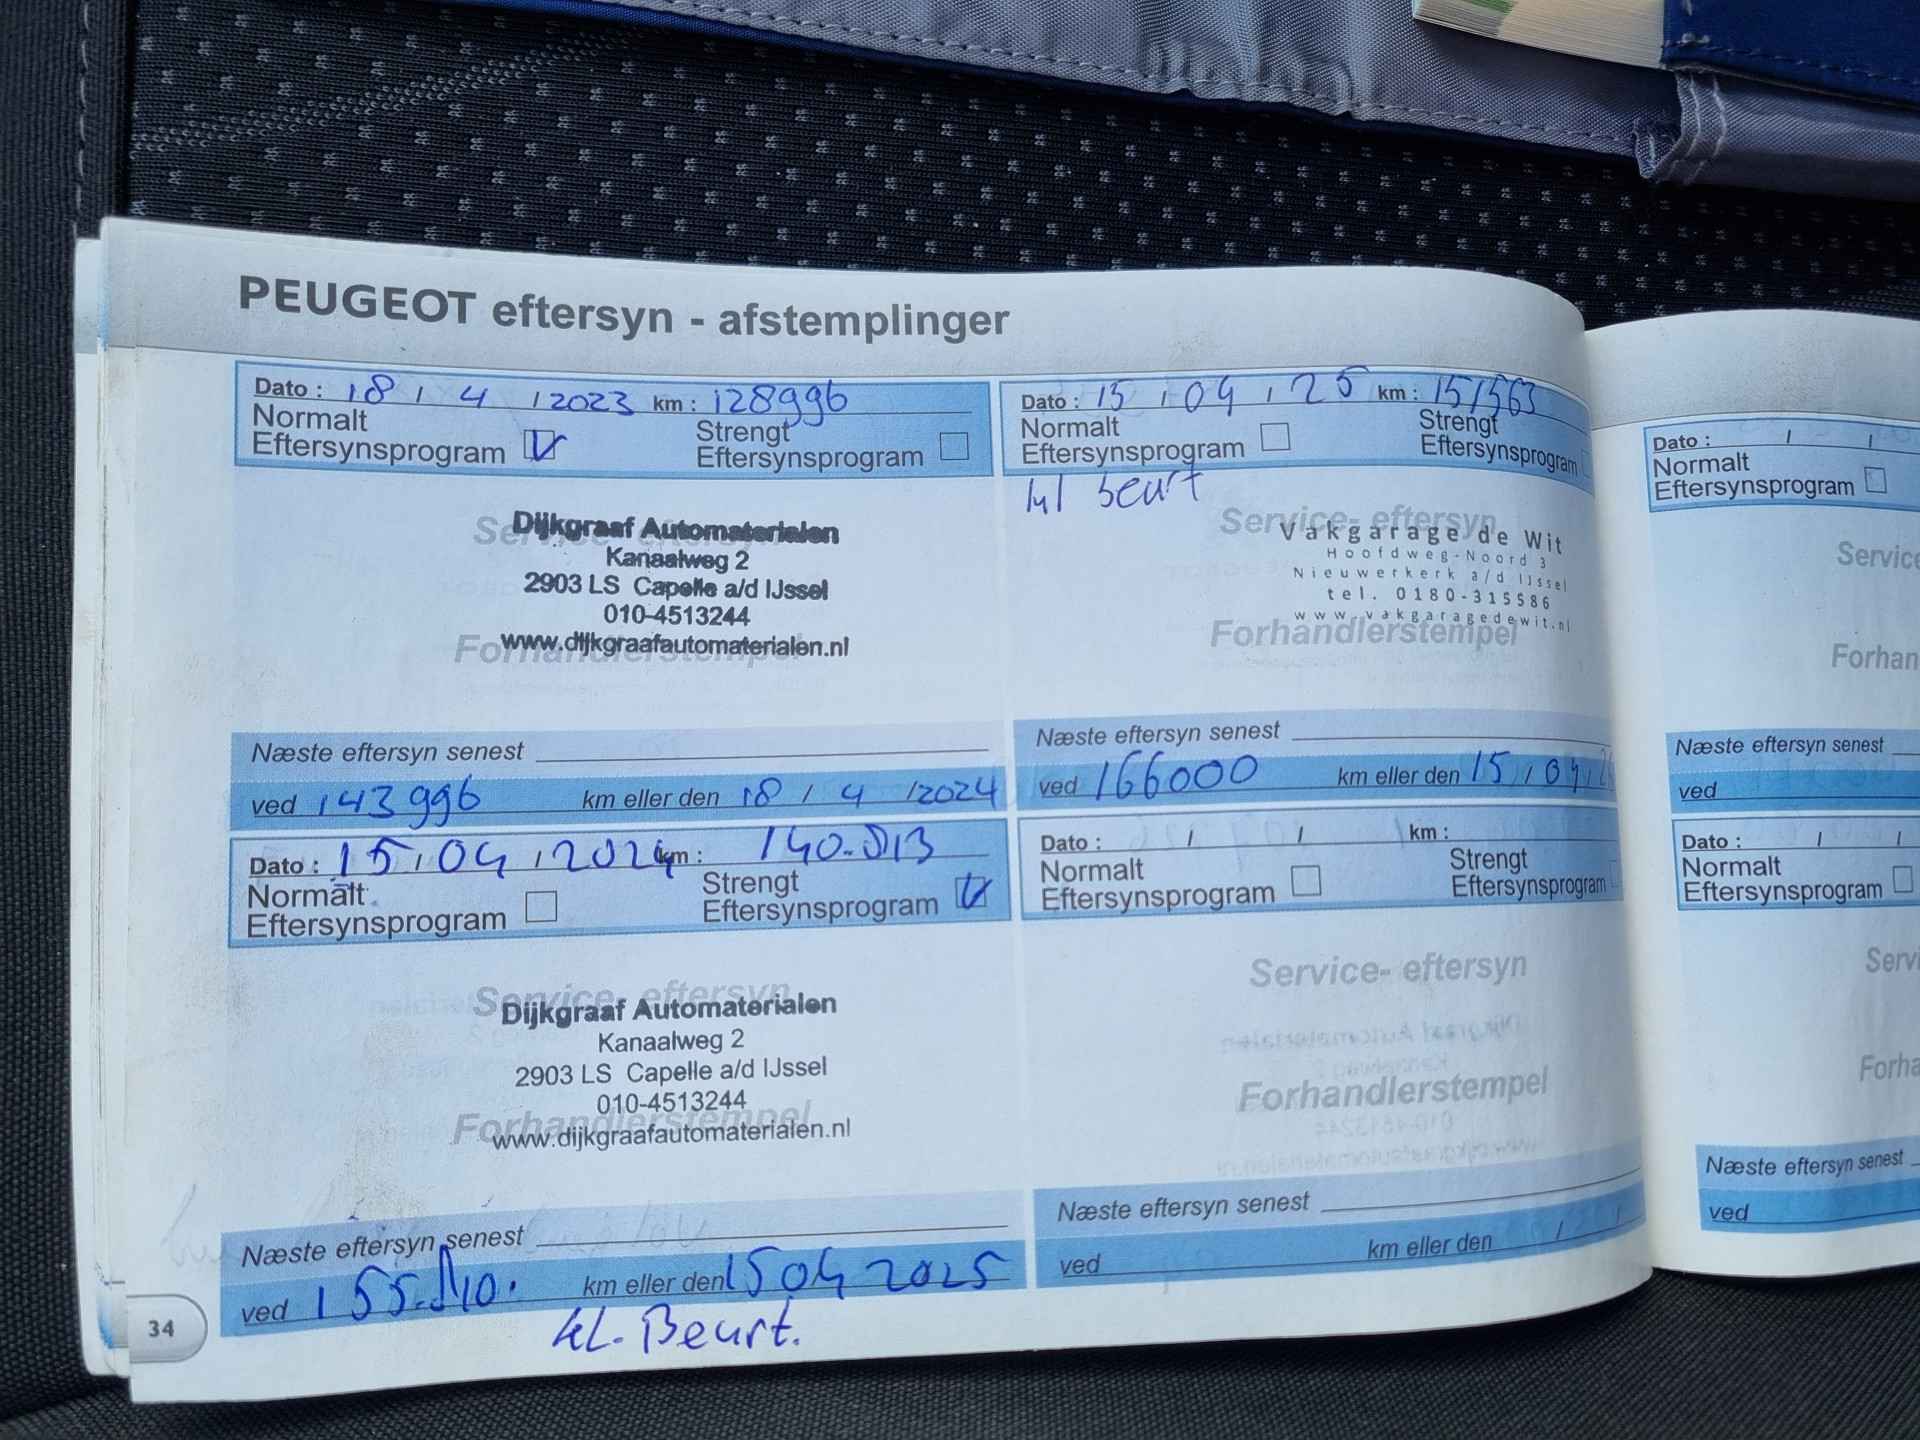 PEUGEOT eftersyn - afstemplinger
Dato : 18 / 4 / 2023 km : 128996
Normalt
Eftersynsprogram
Strengt
Eftersynsprogram
Service- eftersyn
Dijkgraaf Automaterialen
Kanaalweg 2
2903 LS Capelle a/d IJssel
010-4513244
Forhandlerstempel
www.dijkgraafautomaterialen.nl
Næste eftersyn senest
ved 143996 km eller den 18 / 4 / 2024
Dato : 15 / 04 / 2024 km : 140.013
Normalt
Eftersynsprogram
Strengt
Eftersynsprogram
Service- eftersyn
Dijkgraaf Automaterialen
Kanaalweg 2
2903 LS Capelle a/d IJssel
010-4513244
Forhandlerstempel
www.dijkgraafautomaterialen.nl
Næste eftersyn senest
ved km eller den 15 04 2025
kl. Beurt.
34
Dato : 15 / 04 / 25 km : 151563
Normalt
Eftersynsprogram
Strengt
Eftersynsprogram
kl beurt
Service- eftersyn
Vakgarage de Wit
Hoofdweg-Noord 3
Nieuwerkerk a/d IJssel
tel. 0180-315586
www.vakgaragedewit.nl
Forhandlerstempel
Næste eftersyn senest
ved 166000 km eller den 15 / 04 /
Dato : / / km :
Normalt
Eftersynsprogram
Strengt
Eftersynsprogram
Service- eftersyn
Forhandlerstempel
Næste eftersyn senest
ved km eller den / /
Dato : / /
Normalt
Eftersynsprogram
Service
Forhan
Næste eftersyn senest
ved
Dato : / /
Normalt
Eftersynsprogram
Servi
Forha
Næste eftersyn senest
ved